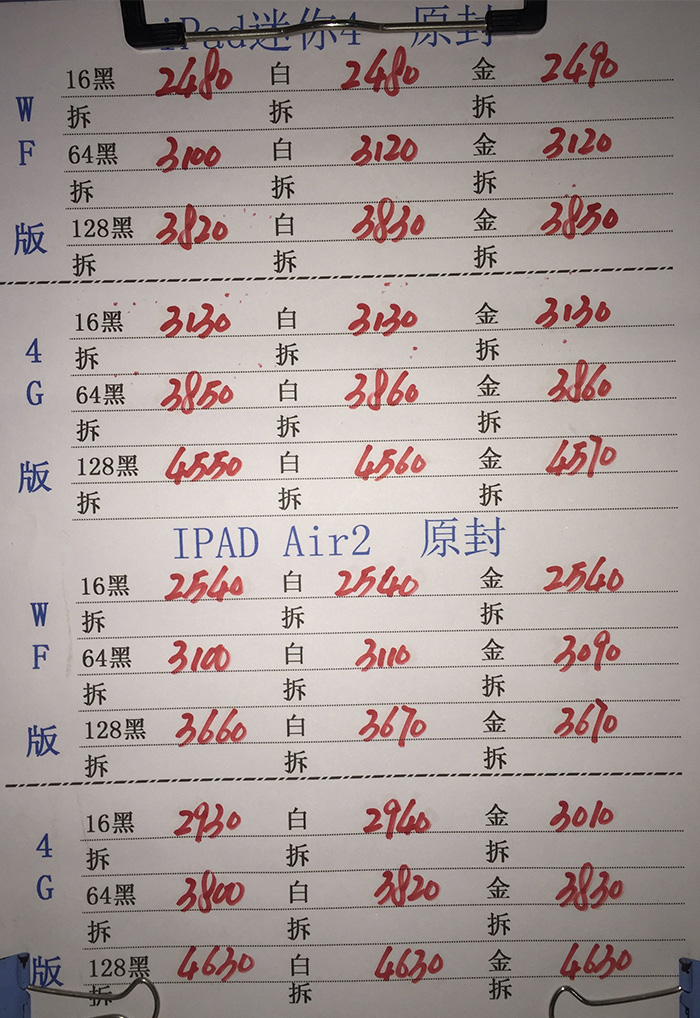 iPad迷你4 原封
16黑 2480 白 2480 金 2490
W
拆 拆 拆
F
64黑 3100 白 3120 金 3120
拆 拆 拆
版
128黑 3820 白 3830 金 3850
拆 拆 拆
16黑 3130 白 3130 金 3130
4
拆 拆 拆
G
64黑 3850 白 3860 金 3860
拆 拆 拆
版
128黑 4550 白 4560 金 4570
拆 拆 拆
IPAD Air2 原封
16黑 2540 白 2540 金 2540
W
拆 拆 拆
F
64黑 3100 白 3110 金 3090
拆 拆 拆
版
128黑 3660 白 3670 金 3670
拆 拆 拆
16黑 2930 白 2940 金 3010
4
拆 拆 拆
G
64黑 3800 白 3820 金 3830
拆 拆 拆
版
128黑 4630 白 4630 金 4630
拆 拆 拆